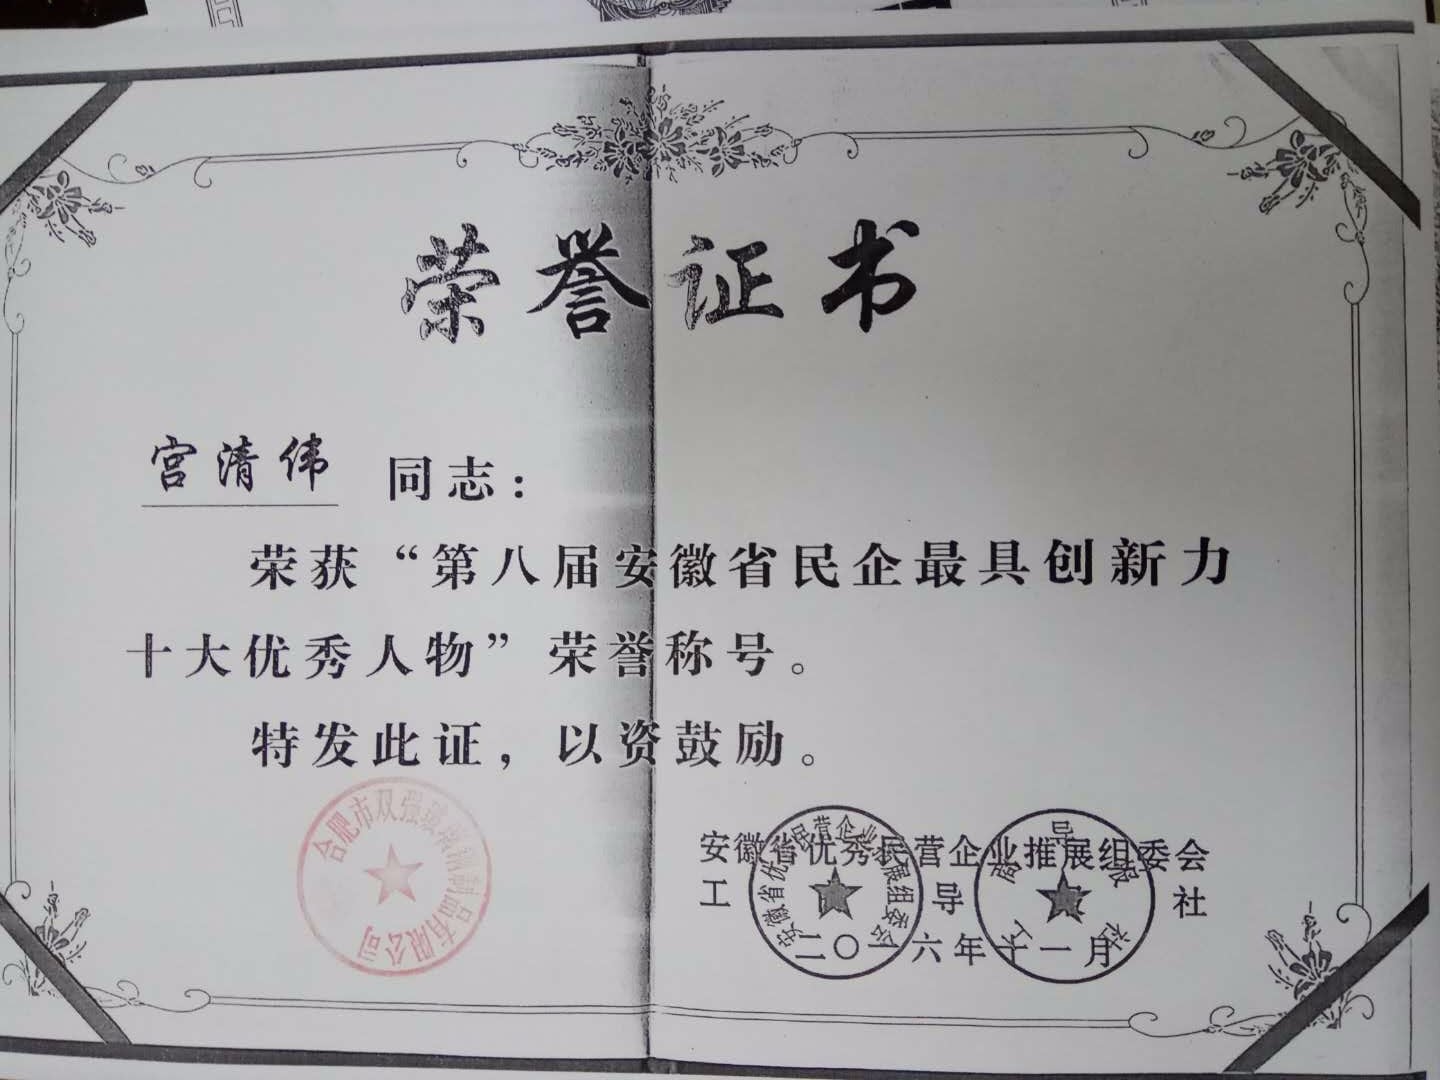 荣誉证书
宫清伟 同志：
荣获“第八届安徽省民企最具创新力
十大优秀人物”荣誉称号。
特发此证，以资鼓励。
合肥市双强玻璃钢制品有限公司
安徽省优秀民营企业推展组委会
工商导报社
二〇一六年十一月
安徽省优秀民营企业推展组委会
工商导报社